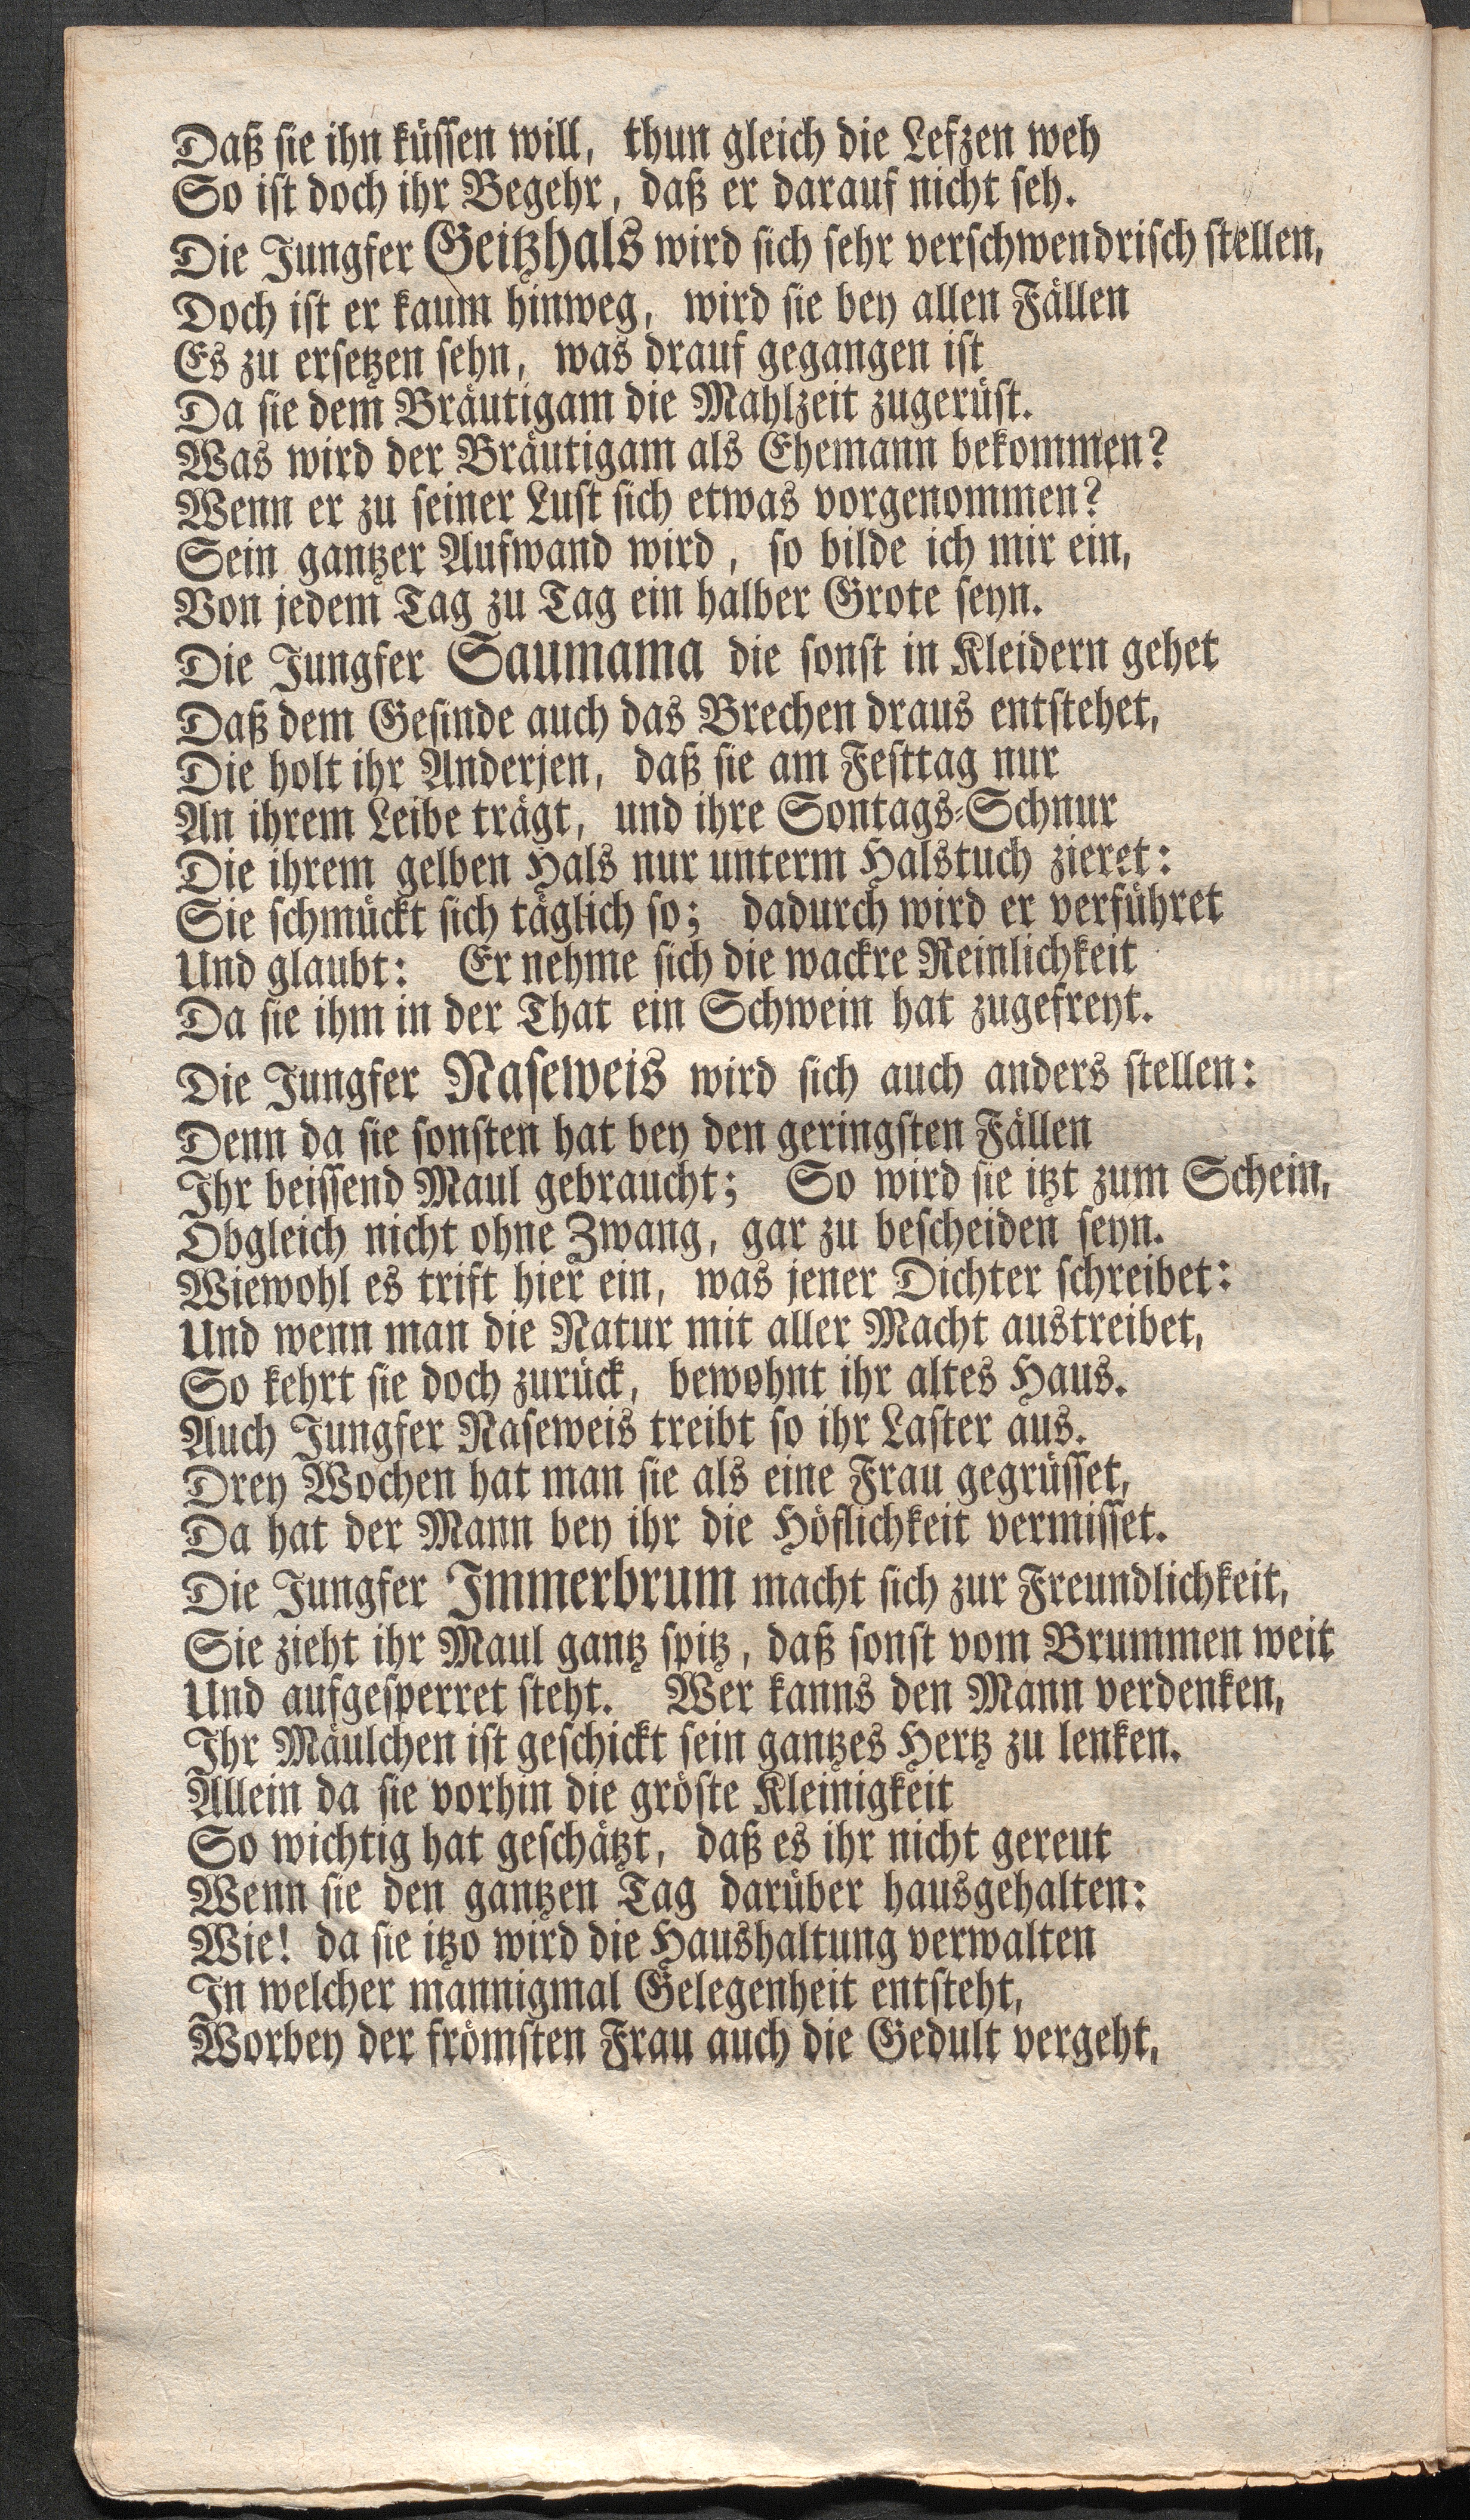 Daß sie ihn küssen will, thun gleich die Lefzen weh
So ist doch ihr Begehr, daß er darauf nicht seh.
Die Jungfer Geitzhals wird sich sehr verschwendrisch stellen,
Doch ist er kaum hinweg, wird sie bey allen Fällen
Es zu ersetzen sehn, was drauf gegangen ist
Da sie dem Bräutigam die Mahlzeit zugerüst.
Was wird der Bräutigam als Ehemann bekommen?
Wenn er zu seiner Lust sich etwas vorgenommen?
Sein gantzer Aufwand wird, so bilde ich mir ein,
Von jedem Tag zu Tag ein halber Grote seyn.
Die Jungfer Saumama die sonst in Kleidern gehet
Daß dem Gesinde auch das Brechen draus entstehet,
Die holt ihr Anderjen, daß sie am Festtag nur
An ihrem Leibe trägt, und ihre Sontags-Schnur
Die ihrem gelben Hals nur unterm Halstuch zieret:
Sie schmückt sich täglich so; dadurch wird er verführet
Und glaubt: Er nehme sich die wackre Reinlichkeit
Da sie ihm in der That ein Schwein hat zugefreyt.
Die Jungfer Naseweis wird sich auch anders stellen:
Denn da sie sonsten hat bey den geringsten Fällen
Ihr beissend Maul gebraucht; So wird sie itzt zum Schein,
Obgleich nicht ohne Zwang, gar zu bescheiden seyn.
Wiewohl es trift hier ein, was jener Dichter schreibet:
Und wenn man die Natur mit aller Macht austreibet,
So kehrt sie doch zurück, bewohnt ihr altes Haus.
Auch Jungfer Naseweis treibt so ihr Laster aus.
Drey Wochen hat man sie als eine Frau gegrüsset,
Da hat der Mann bey ihr die Höflichkeit vermisset.
Die Jungfer Immerbrum macht sich zur Freundlichkeit,
Sie zieht ihr Maul gantz spitz, daß sonst vom Brummen weit
Und aufgesperret steht. Wer kanns den Mann verdenken,
Ihr Mäulchen ist geschickt sein gantzes Hertz zu lenken.
Allein da sie vorhin die gröste Kleinigkeit
So wichtig hat geschätzt, daß es ihr nicht gereut
Wenn sie den gantzen Tag darüber hausgehalten:
Wie! da sie itzo wird die Haushaltung verwalten
In welcher mannigmal Gelegenheit entsteht,
Worbey der frömsten Frau auch die Gedult vergeht,